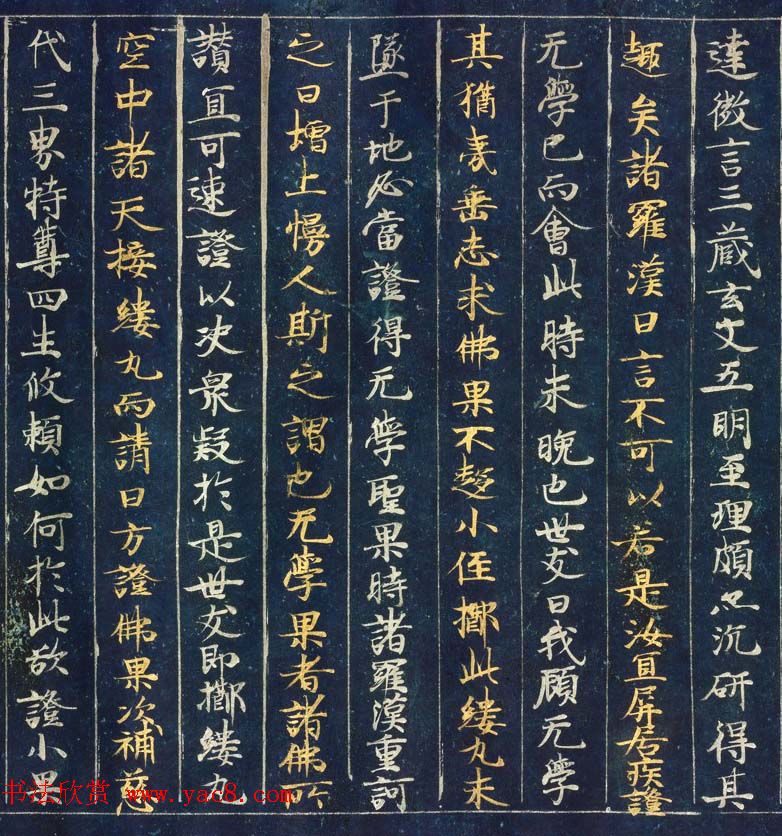 達微言三藏玄文五明至理頗亦沉研得其
趣矣諸羅漢曰言不可以若是汝宜屏居疾證
无學已而會此時未晚也世友曰我顧无學
其猶毫垂志求佛果不趍小侄擲此縷丸未
墜于地必當證得无學聖果時諸羅漢重訶
之曰增上慢人斯之謂也无學果者諸佛所
讃宜可速證以决衆疑於是世友即擲縷丸
空中諸天接縷丸而請曰方證佛果次補慈
代三界特尊四生攸賴如何於此欲證小果
书法欣赏 www.yac8.com